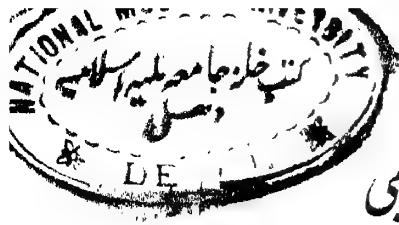 NATIONAL UNIVERSITY
کتب خانہ جامعہ ملیہ اسلامیہ
دھلی
DE